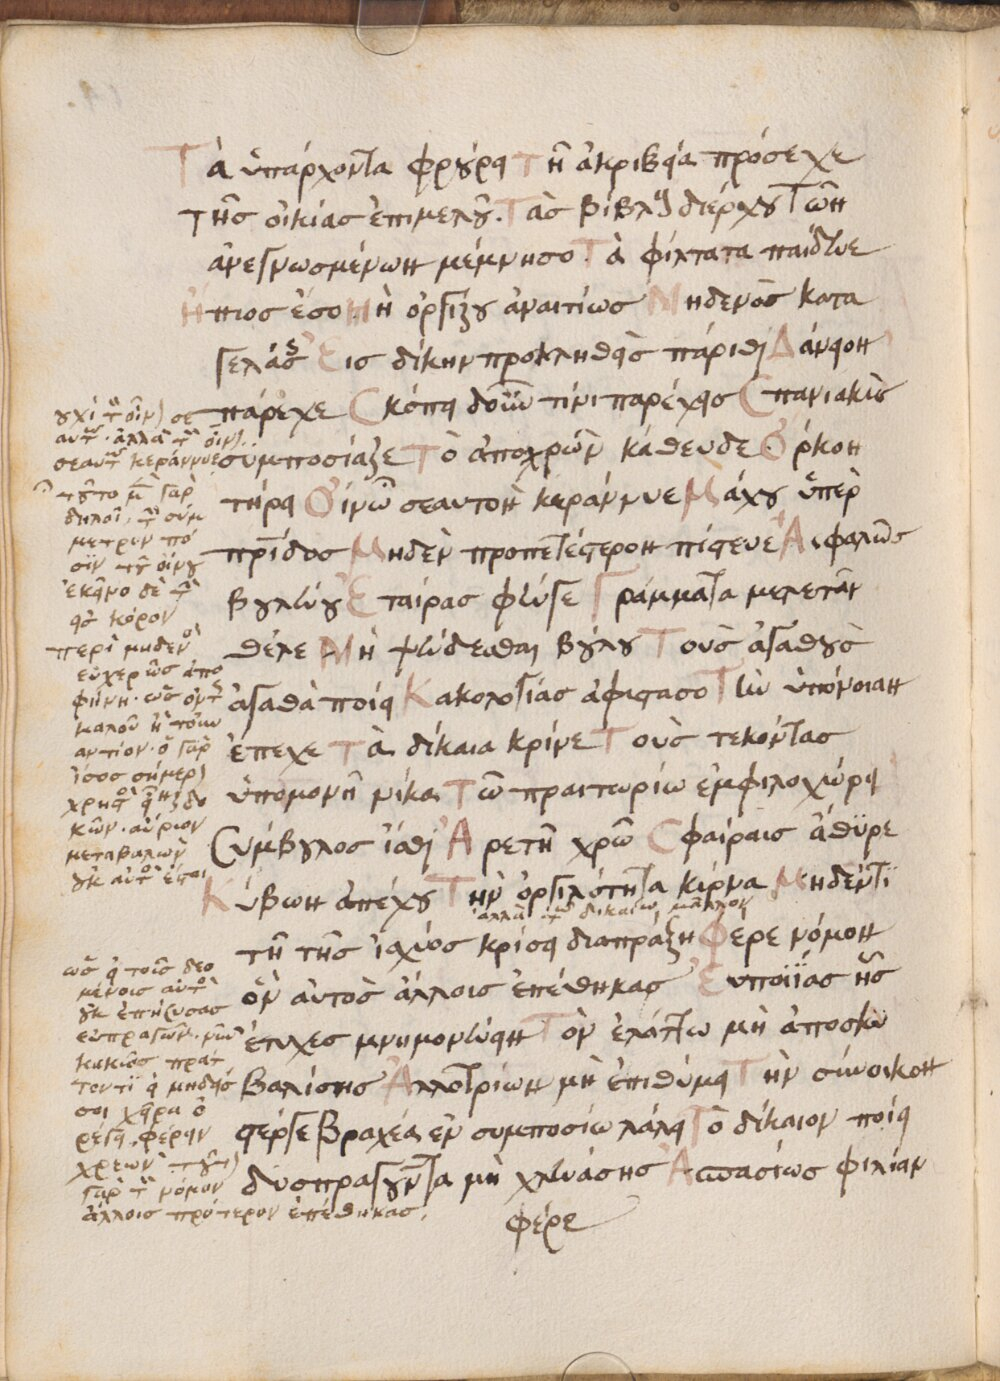 Τὰ ὑπάρχοντα φρούρει Τῇ ἀκριβείᾳ πρόσεχε
τῆς οἰκίας ἐπιμελοῦ. Τὰς βίβλους διέρχου Τῶν
ἀνεγνωσμένων μέμνησο Τὰ φίλτατα παίδευε
Ἤπιος ἔσο Μὴ ὀργίζου ἀναιτίως Μηδενὸς κατα
γελάσῃς Εἰς δίκην προκληθεὶς πάριθι Δάνειον
πάρεχε Σκόπει δοῦναι τίνι παρέχεις Σπανιακὶς
συμποσίαζε Τὸ ἀποχρῶν κάθευδε Ὅρκον
τήρει Οἶνῳ σεαυτὸν κεράννυε Μάχου ὑπὲρ
πατρίδος Μηδὲν προπετέστερον πίστευε Ἀσφαλῶς
βουλεύου Ἑταίρας φεῦγε Γράμματα μελετᾶν
θέλε Μὴ ψεύδεσθαι βούλου Τοὺς ἀγαθοὺς
ἀγαθὰ ποίει Κακολογίας ἀφίστασο Τὴν ὑπόνοιαν
ἔπεχε Τὰ δίκαια κρίνε Τοὺς τεκόντας
ὑπομονῇ νίκα Τῷ πραιτωρίῳ ἐμφιλοχώρει
Σύμβουλος ἴσθι Ἀρετῇ χρῶ Σφαίραις ἄθυρε
Κύβων ἀπέχου Τὴν ὀργιλότητα κίρνα Μηδέν τι
ἀλλὰ τῷ δικαίῳ μᾶλλον
τῇ τῆς ἰσχύος κρίσει διαπράξῃ Φέρε νόμον
ὃν αὐτὸς ἄλλοις ἐπέθηκας Εὐποιΐας ἧς
ἔτυχες μνημονεύειν Τὸν ἐλάττω μὴ ἀποσκυ
βαλίσῃς Ἀλλοτρίων μὴ ἐπιθύμει Τὴν σύνοικον
στέργε Βραχέα ἐν συμποσίῳ λάλει Τὸ δίκαιον ποίει
δυσπραγοῦντα μὴ χλευάσῃς Ἀσπασίως φιλίαν
φέρε
οὐχὶ τὸν οἶνον σε
αυτῷ. ἀλλὰ τῷ οἴνῳ
σεαυτὸν κεράννυε
τοῦτο μὲν γὰρ
δηλοῖ, τὴν σύμ
μετρον πό
σιν τοῦ οἴνου
ἐκεῖνο δὲ τὸν
εἰς κόρον
περὶ μηδενὸς
εὐχερῶς ἀπο
φήνῃ. ὡς ὄντος
καλοῦ ἢ τοὐν
αντίον. ὁ γὰρ
ἴσως σήμερον
χρηστὸς εἶναι δο
κῶν. αὔριον
μεταβαλὼν
οὐκ αὐτὸς ἔσται
ὡς εἰ τοῖς δεο
μένοις αὐτὸς
οὐκ ἐπήρκεσας
εὐπραγῶν. νῦν
κακῶς πράτ
τοντι εἰ μηδείς
σοι χεῖρα ὀ
ρέγει. φέρειν
χρεών. τοῦτον
γὰρ τὸν νόμον
ἄλλοις πρότερον ἐπέθηκας.